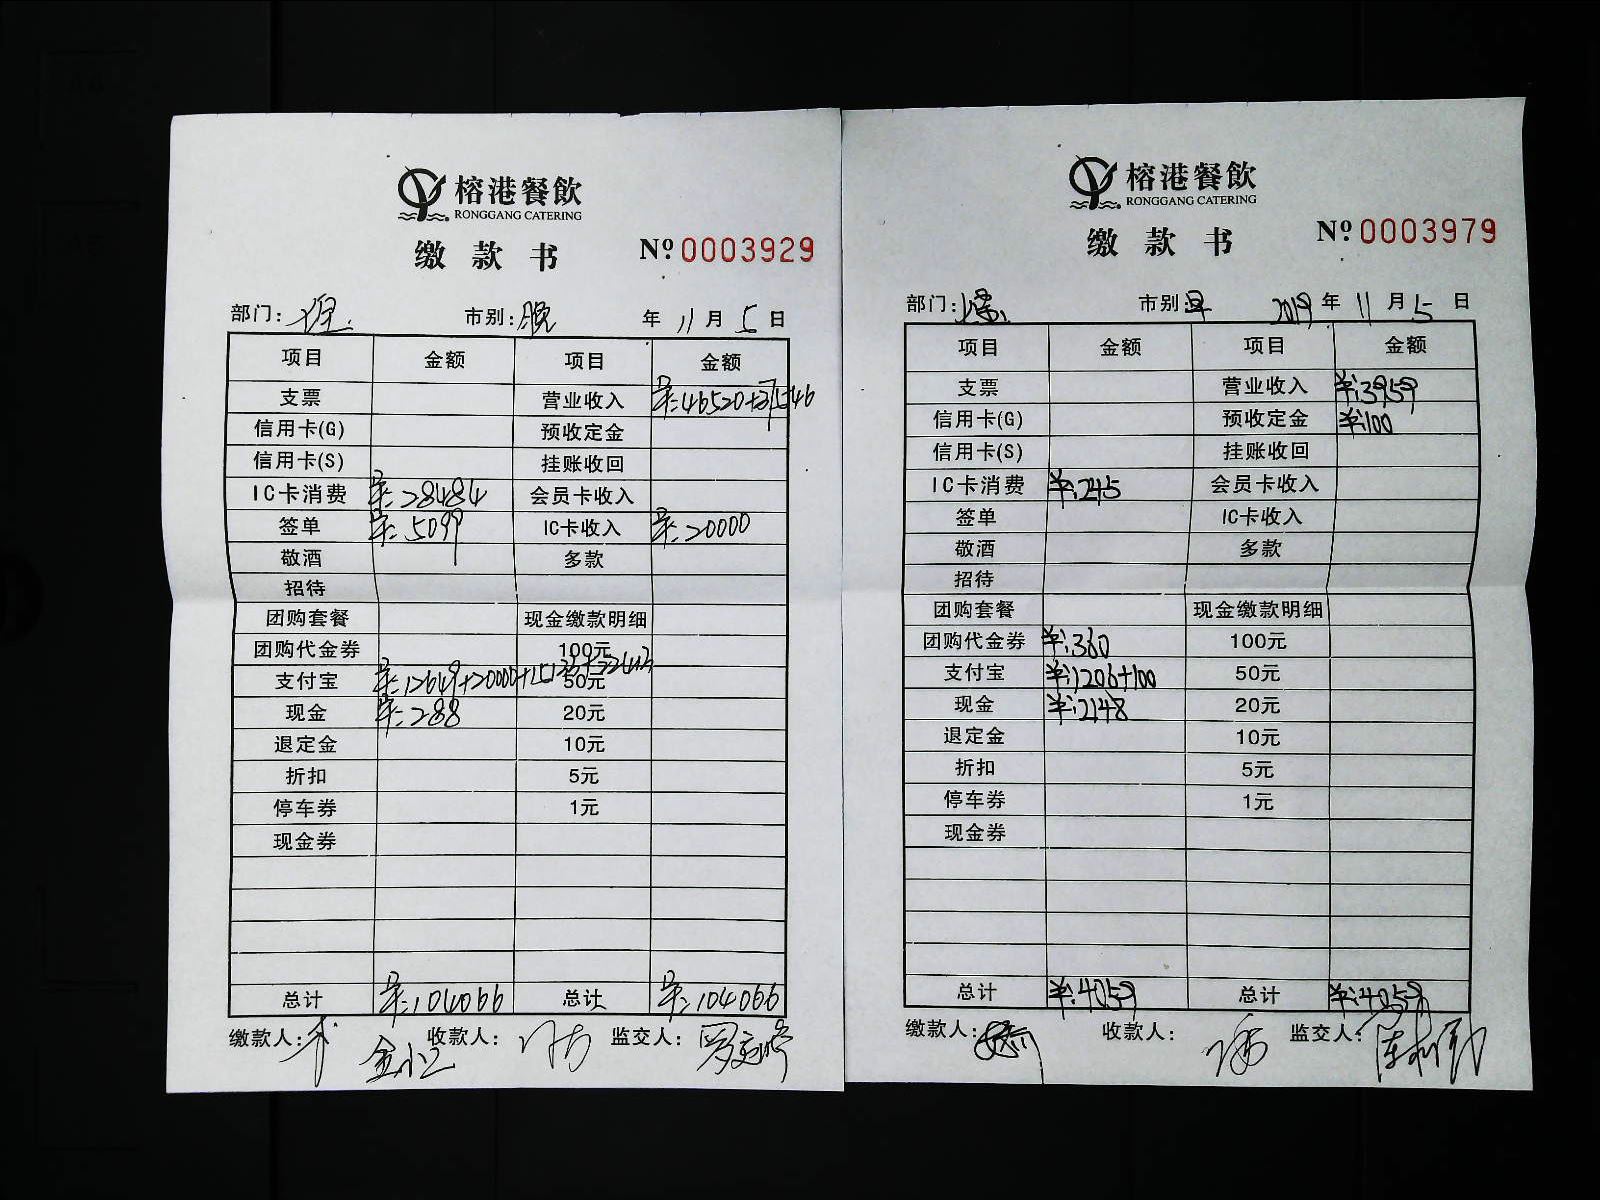 榕港餐飲
RONGGANG CATERING
缴款书
Nº 0003929
部门: 市别:晚 年 11 月 5 日
项目 金额 项目 金额
支票 营业收入 ¥:46520+37546
信用卡(G) 预收定金
信用卡(S) 挂账收回
IC卡消费 ¥:28484 会员卡收入
签单 ¥:5099 IC卡收入 ¥:20000
敬酒 多款
招待
团购套餐 现金缴款明细
团购代金券 100元
支付宝 ¥:12649+20000+15133+22413 50元
现金 ¥:288 20元
退定金 10元
折扣 5元
停车券 1元
现金券
总计 ¥:104066 总计 ¥:104066
缴款人: 收款人: 监交人:
榕港餐飲
RONGGANG CATERING
缴款书
Nº 0003979
部门: 市别:早 2019 年 11 月 5 日
项目 金额 项目 金额
支票 营业收入 ¥:3959
信用卡(G) 预收定金 ¥:100
信用卡(S) 挂账收回
IC卡消费 ¥:245 会员卡收入
签单 IC卡收入
敬酒 多款
招待
团购套餐 现金缴款明细
团购代金券 ¥:360 100元
支付宝 ¥:1206+100 50元
现金 ¥:2148 20元
退定金 10元
折扣 5元
停车券 1元
现金券
总计 ¥:4059 总计 ¥:4059
缴款人: 收款人: 监交人: